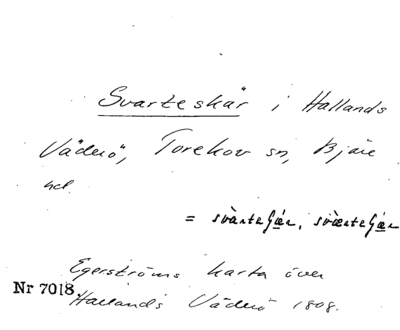 Svarteskär i Hallands
Väderö, Torekov sn, Bjäre
hd
= svàrteʃǽr, svæ̀rteʃǽr
Egerströms karta över
Nr 7018. Hallands Väderö 1808.